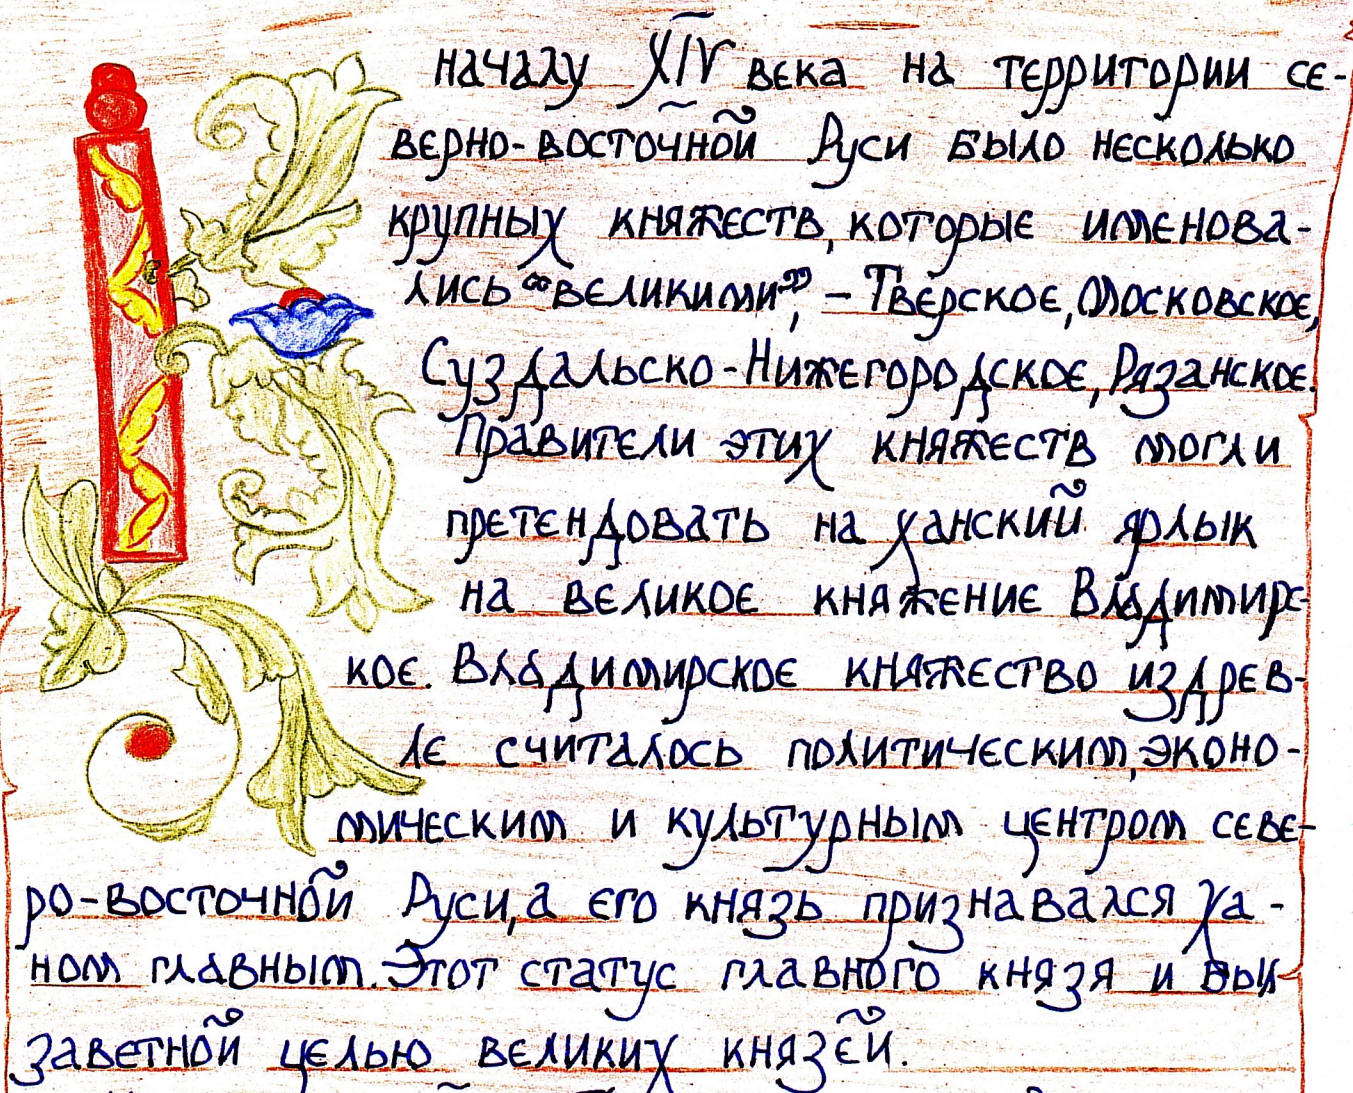 К началу XIV века на территории се-
верно-восточной Руси было несколько
крупных княжеств, которые именова-
лись "великими", - Тверское, Московское,
Суздальско-Нижегородское, Рязанское.
Правители этих княжеств могли
претендовать на ханский ярлык
на великое княжение Владимирс-
кое. Владимирское княжество издрев-
ле считалось политическим, эконо-
мическим и культурным центром севе-
ро-восточной Руси, а его князь признавался ха-
ном главным. Этот статус главного князя и был
заветной целью великих князей.